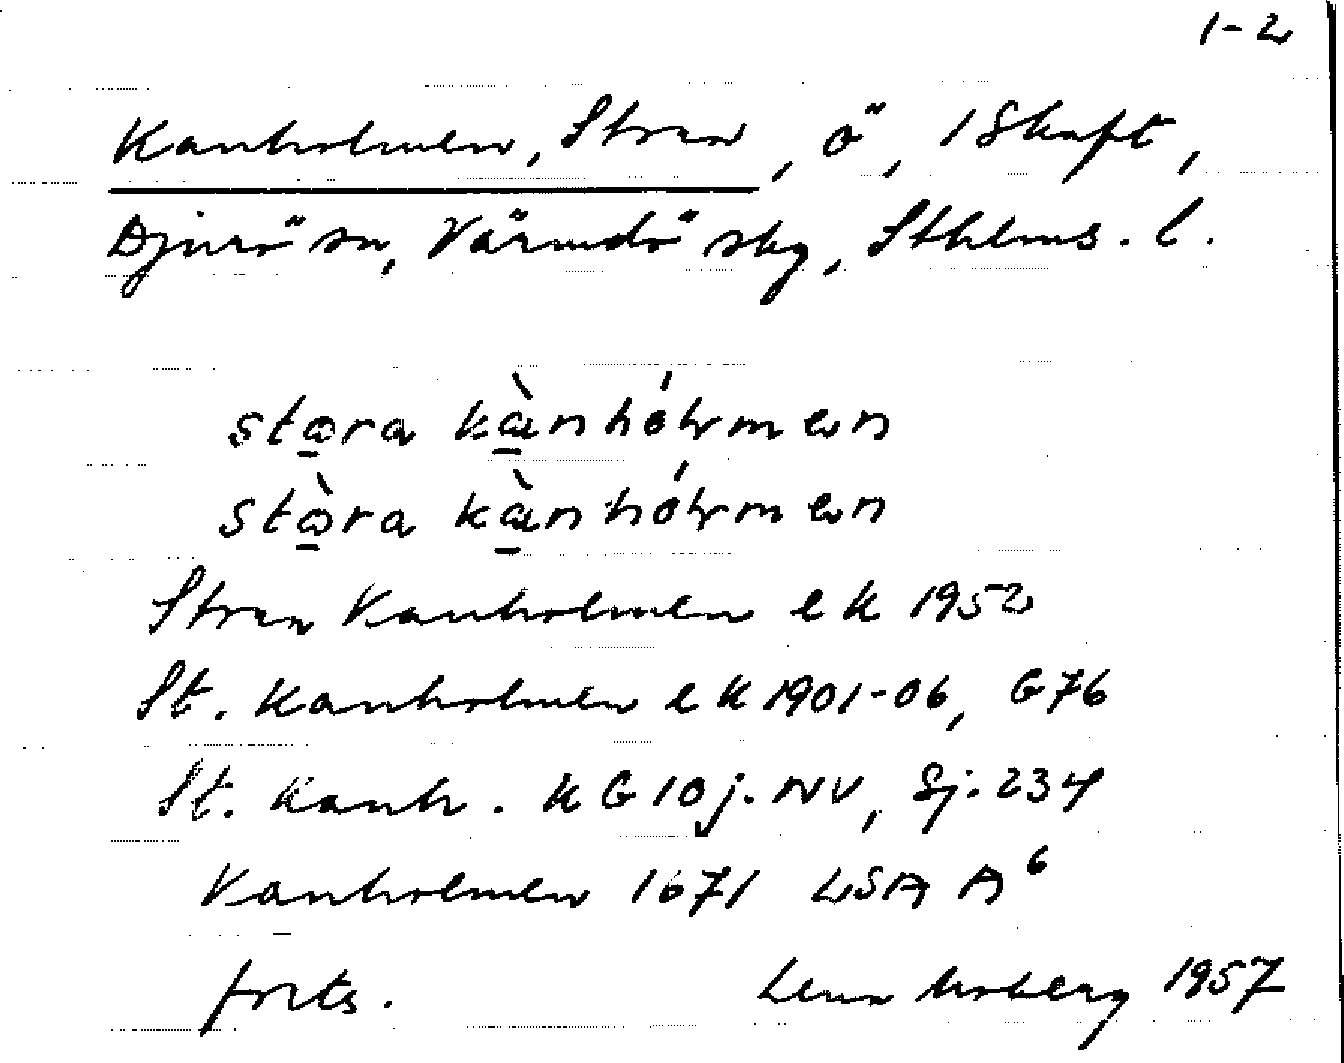 1-2
Kanholmen, Stora, ö, 1 Skaft,
Djurö sn, Värmdö skg, Sthlms. l.
stora kànhólmen
stòra kànhólmen
Stora Kanholmen ek 1952
St. Kanholmen ek 1901-06, G76
St. Kanh. KG 10j. NV, Sj. 234
Kanholmen 1671 LSA A6
forts. 1957